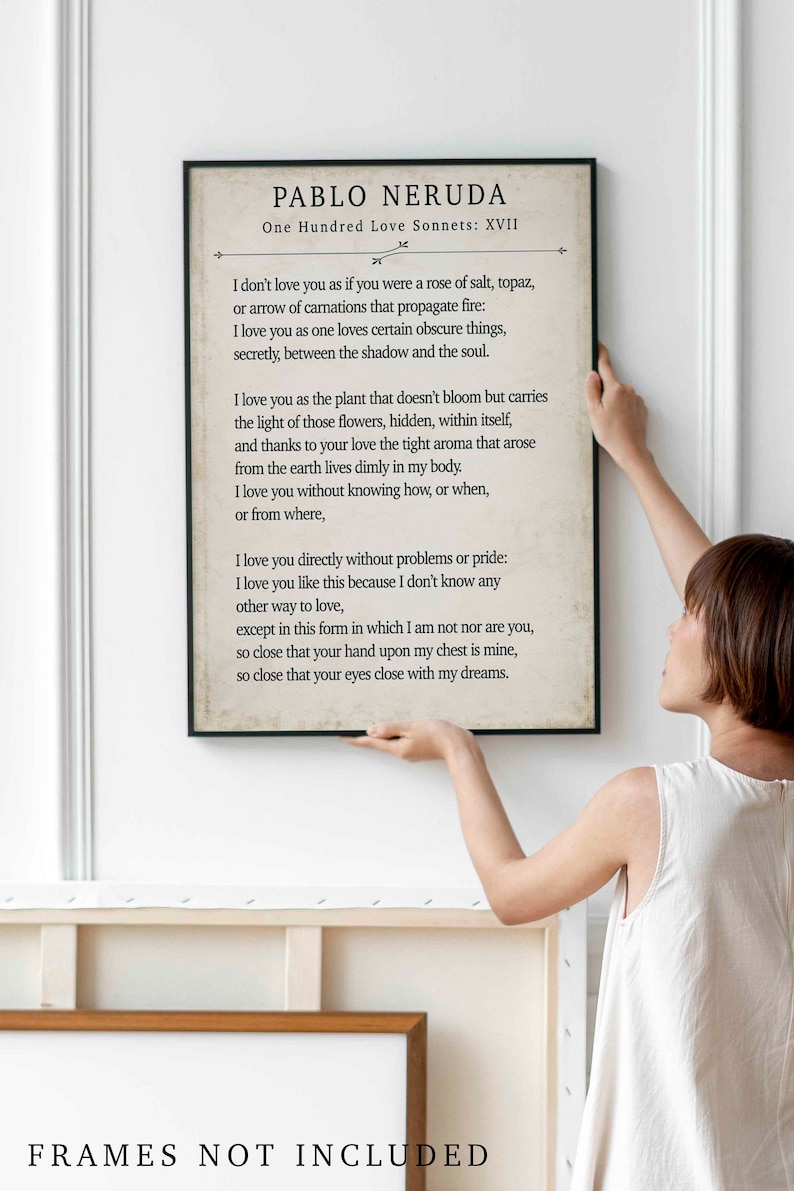 PABLO NERUDA
One Hundred Love Sonnets: XVII
I don't love you as if you were a rose of salt, topaz,
or arrow of carnations that propagate fire:
I love you as one loves certain obscure things,
secretly, between the shadow and the soul.
I love you as the plant that doesn't bloom but carries
the light of those flowers, hidden, within itself,
and thanks to your love the tight aroma that arose
from the earth lives dimly in my body.
I love you without knowing how, or when,
or from where,
I love you directly without problems or pride:
I love you like this because I don't know any
other way to love,
except in this form in which I am not nor are you,
so close that your hand upon my chest is mine,
so close that your eyes close with my dreams.
FRAMES NOT INCLUDED